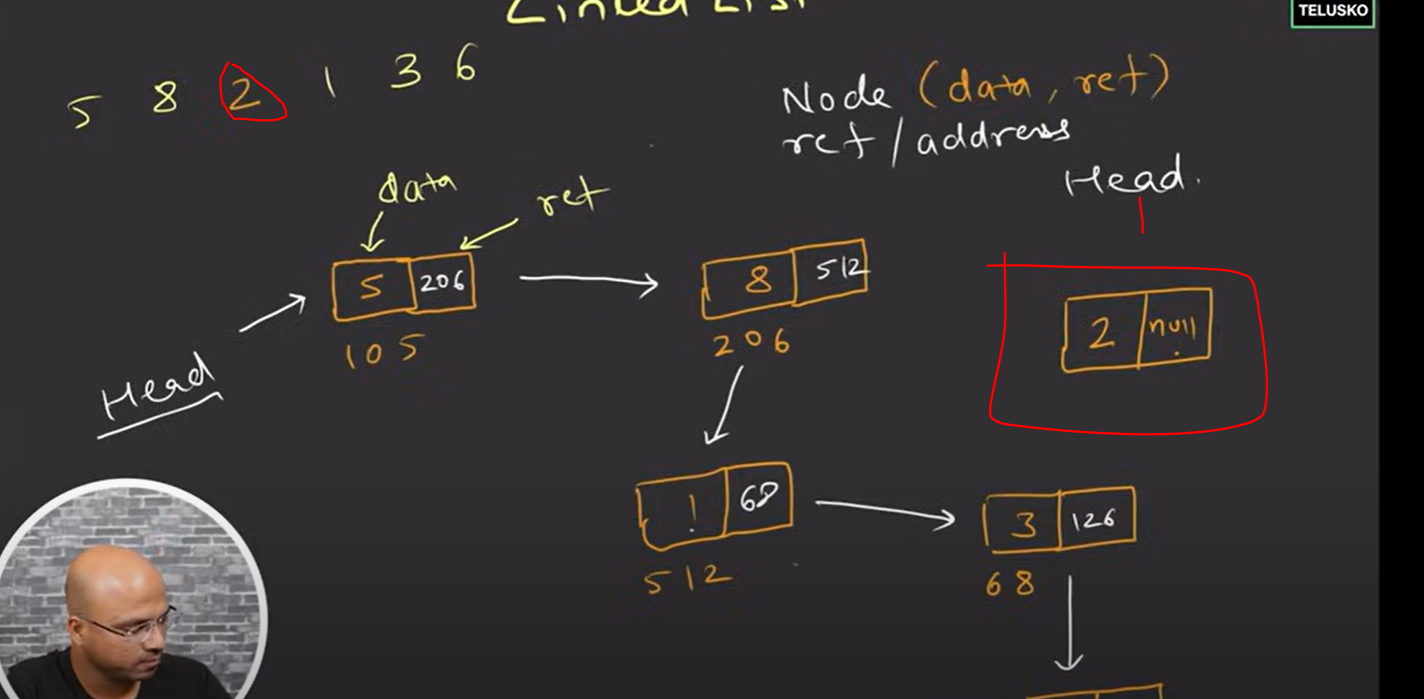 Linked List
TELUSKO
5 8 2 1 3 6
Node (data, ref)
ref/address
Head.
data
ref
5 206
8 512
2 null
105
206
Head
1 68
3 126
512
68